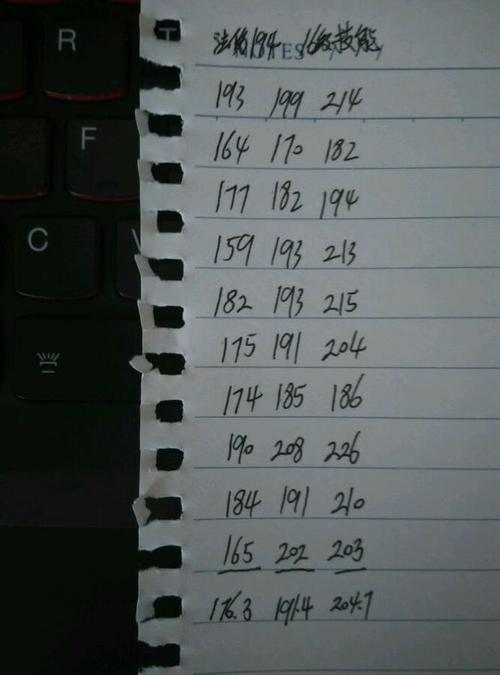 法伤194 16级技能
R
193 199 214
F
164 170 182
177 182 194
C
159 193 213
182 193 215
175 191 204
174 185 186
190 208 226
184 191 210
165 202 203
176.3 191.4 204.7